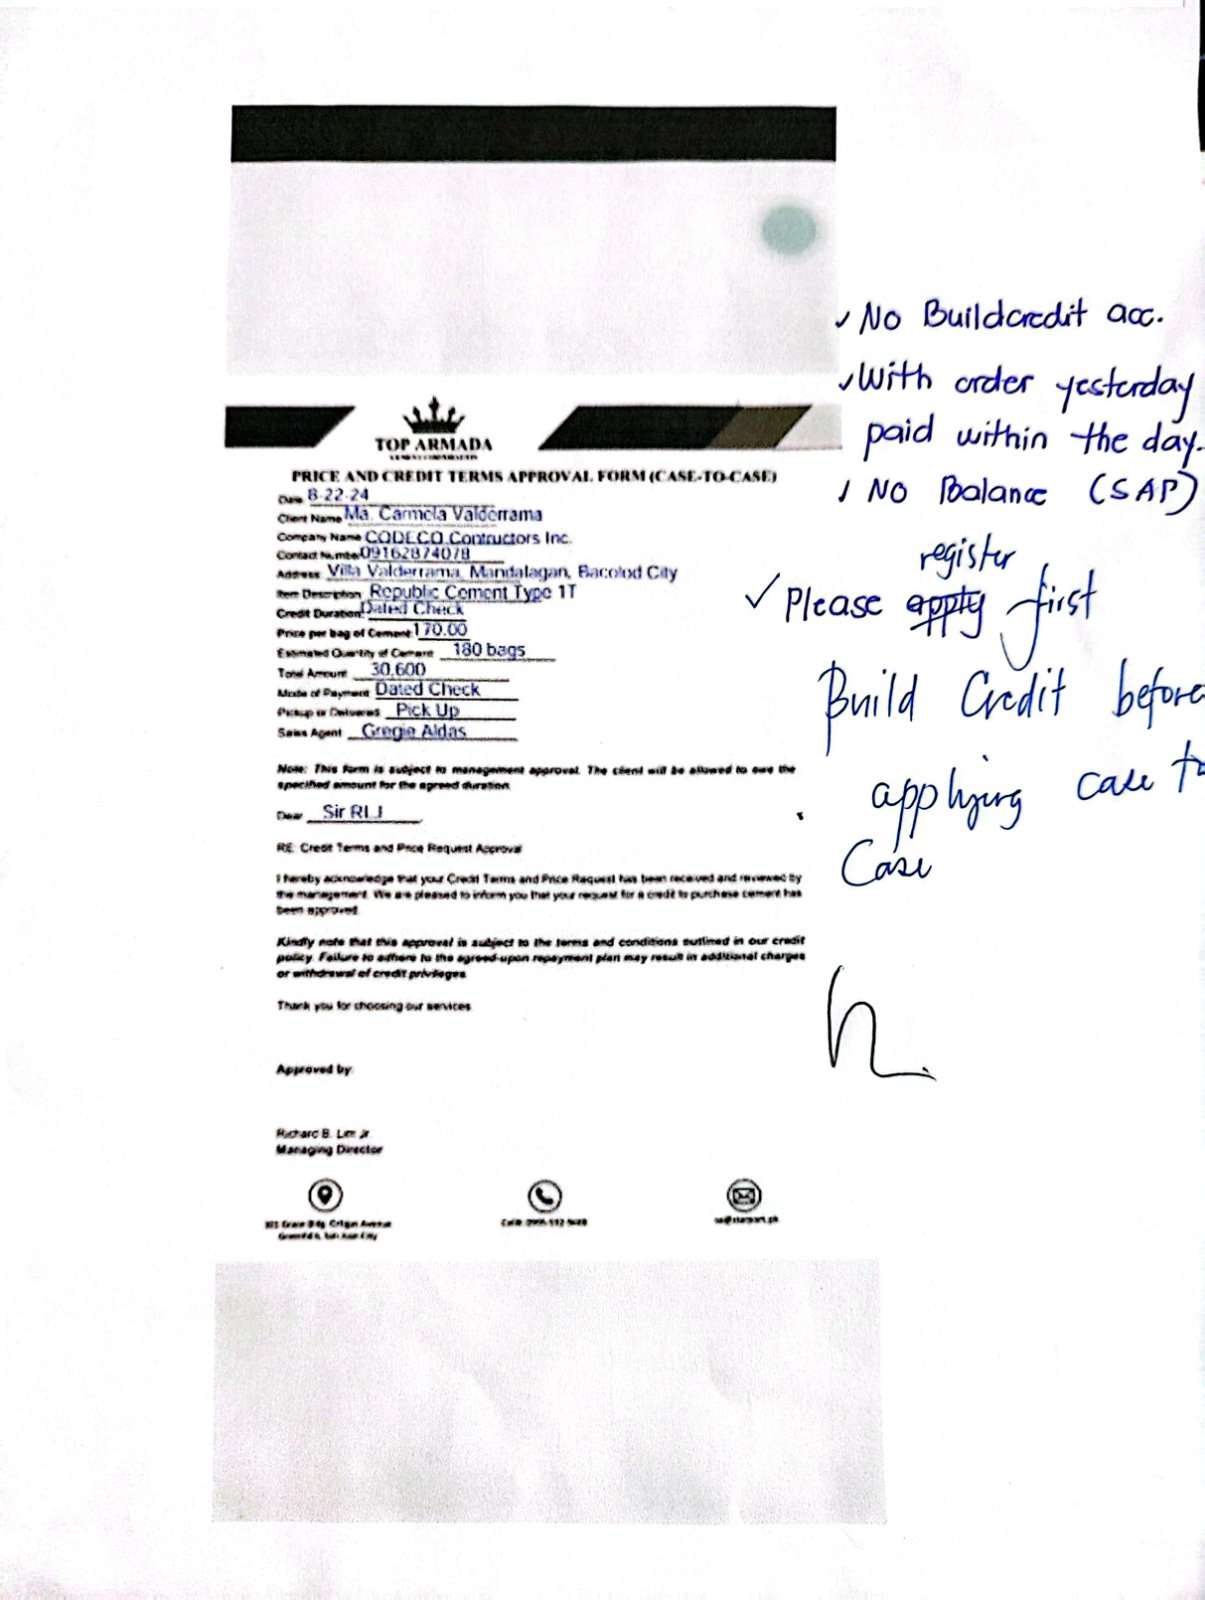 ✓ No Buildcredit acc.
✓ With order yesterday
paid within the day.
✓ No Balance (SAP)
register
✓ Please apply first
Build Credit before
applying case to
Case
TOP ARMADA
PRICE AND CREDIT TERMS APPROVAL FORM (CASE-TO-CASE)
Date 8-22-24
Client Name Ma. Carmela Valderrama
Company Name CODECO Contructors Inc.
Contact Number 09162874078
Address Villa Valderrama, Mandalagan, Bacolod City
Item Description Republic Cement Type 1T
Credit Duration: Dated Check
Price per bag of Cement: 170.00
Estimated Quantity of Cement 180 bags
Total Amount 30,600
Mode of Payment Dated Check
Pickup or Delivered Pick Up
Sales Agent Gregie Aldas
Note: This form is subject to management approval. The client will be allowed to owe the
specified amount for the agreed duration.
Dear Sir RLJ
RE: Credit Terms and Price Request Approval
I hereby acknowledge that your Credit Terms and Price Request has been received and reviewed by
the management. We are pleased to inform you that your request for a credit to purchase cement has
been approved.
Kindly note that this approval is subject to the terms and conditions outlined in our credit
policy. Failure to adhere to the agreed-upon repayment plan may result in additional charges
or withdrawal of credit privileges.
Thank you for choosing our services.
Approved by:
Richard B. Lim Jr.
Managing Director